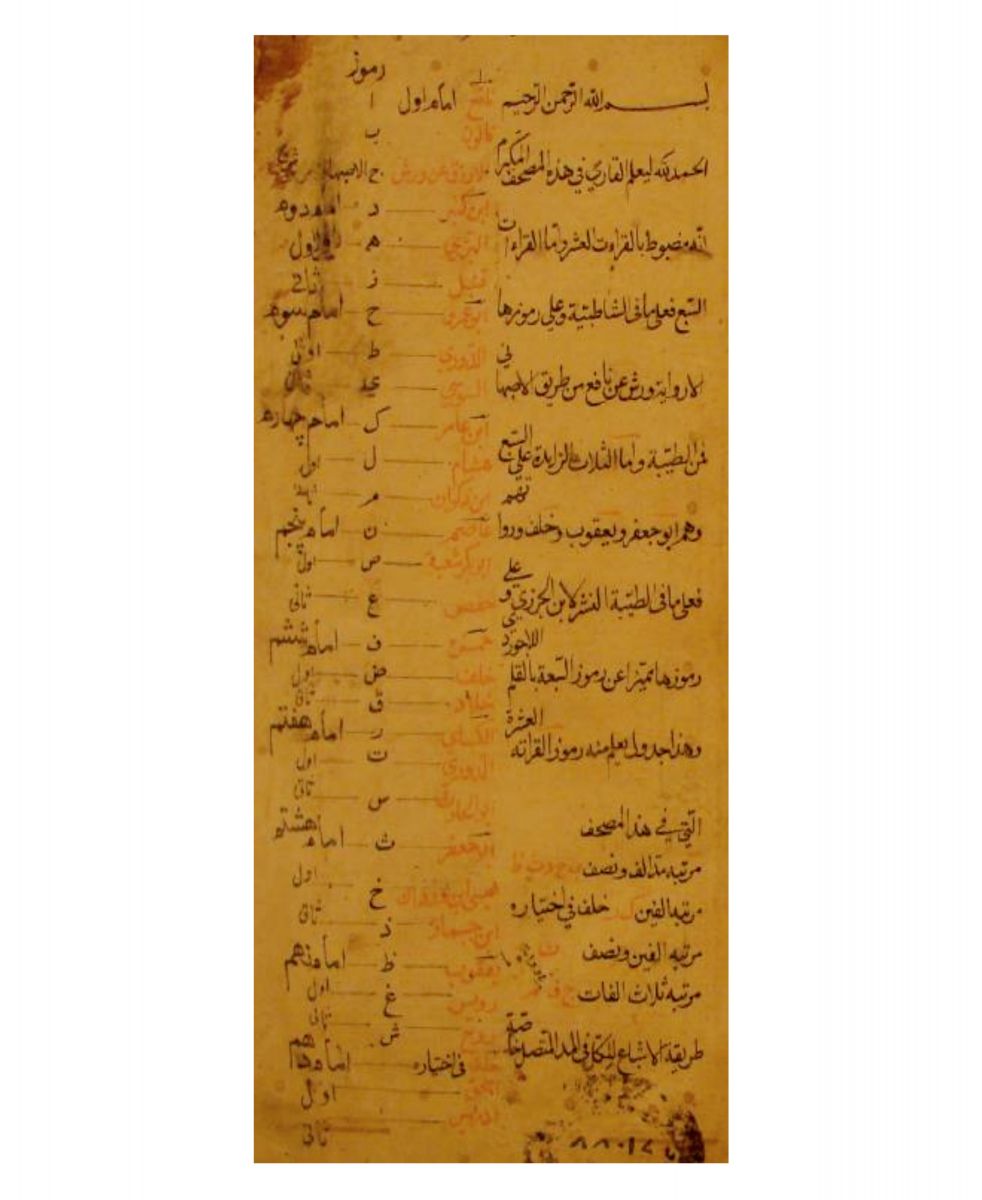 رموز
بسم الله الرحمن الرحيم نافع امام اول ا
قالون ب
الحمد لله ليعلم القارئ في هذه المصحف المكرم
الازرق عن ورش ج الاصبهاني
ابن كثير د امام دوم
انه مضبوط بالقراءت العشر واما القراءات
البزي ه اول
قنبل ز ثاني
السبع فعلى ما في الشاطبية وعلى رموزها
ابو عمرو ح امام سوم
الدوري ط اول
الا رواية ورش عن نافع من طريق الاصبهاني
السوسي ي ثاني
ابن عامر ك امام چهارم
فمن الطيبة واما الثلاث الزايدة على السبع
هشام ل اول
ابن ذكوان م
وهم ابو جعفر ويعقوب وخلف ورواتهم
عاصم ن امام پنجم
ابو بكر شعبة ص اول
فعلى ما في الطيبة النشر لابن الجزري وعلى
حفص ع ثاني
حمزة ف امام ششم
رموزها مميزا عن رموز السبعة بالقلم اللاجوردي
خلف ض اول
خلاد ق ثاني
وهذا جدول يعلم منه رموز القراته العشرة
الكسائي ر امام هفتم
الدوري ت اول
ابو الحارث س ثاني
التي في هذا المصحف
ابو جعفر ث امام هشتم
مرتبه مد الف ونصف
عيسى ابن وردان خ اول
مرتبه الفين خلف في اختياره
ابن جماز ذ ثاني
مرتبه الفين ونصف ن
يعقوب ظ امام نهم
مرتبه ثلاث الفات ج ف م
رويس غ اول
روح ش ثاني
طريقة الاشباع للكل في المد المتصل خاصة
خلف في اختياره امام دهم
اسحق اول
ادريس ثاني